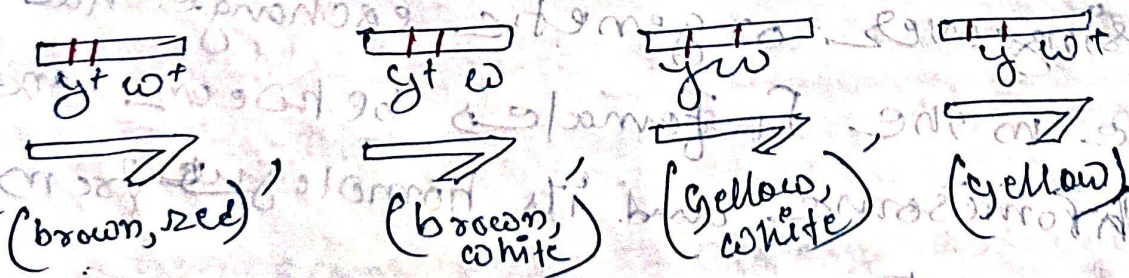 y+ w+ y+ w y w y w+
(brown, red), (brown, white), (yellow, white), (yellow)